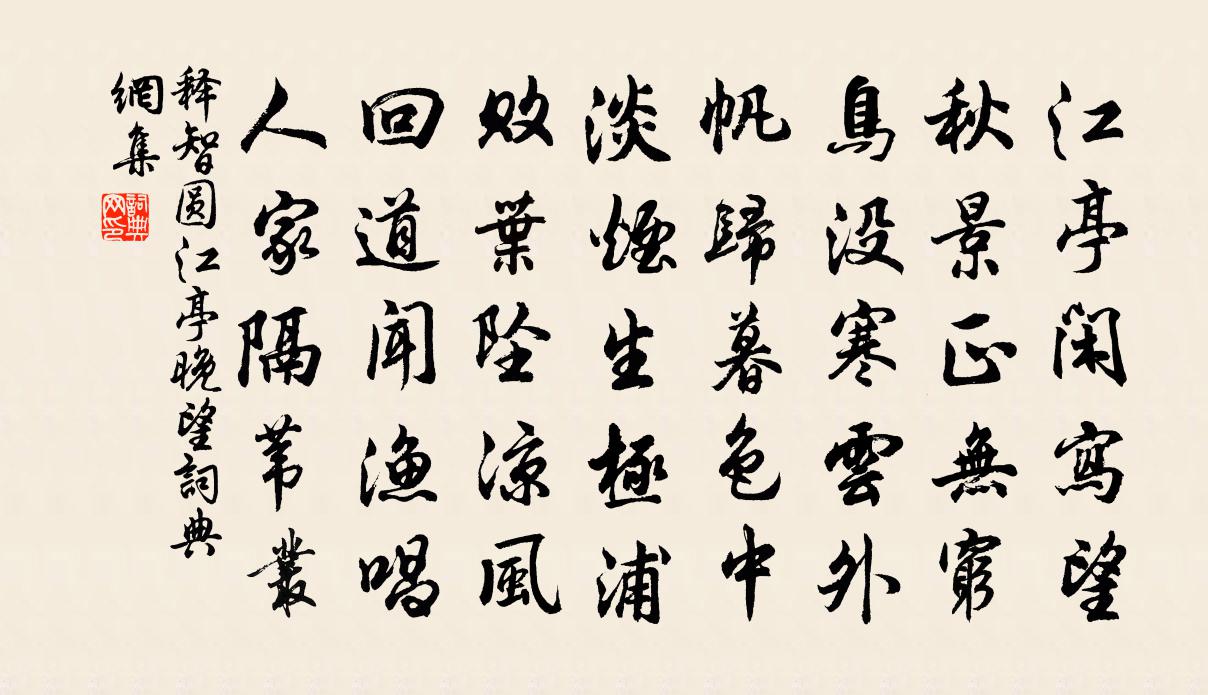 江亭閑寫望
秋景正無窮
鳥没寒雲外
帆歸暮色中
淡煙生極浦
敗葉墜涼風
回道聞漁唱
人家隔葦叢
释智圆江亭晚望詞典
網集
詞典网印